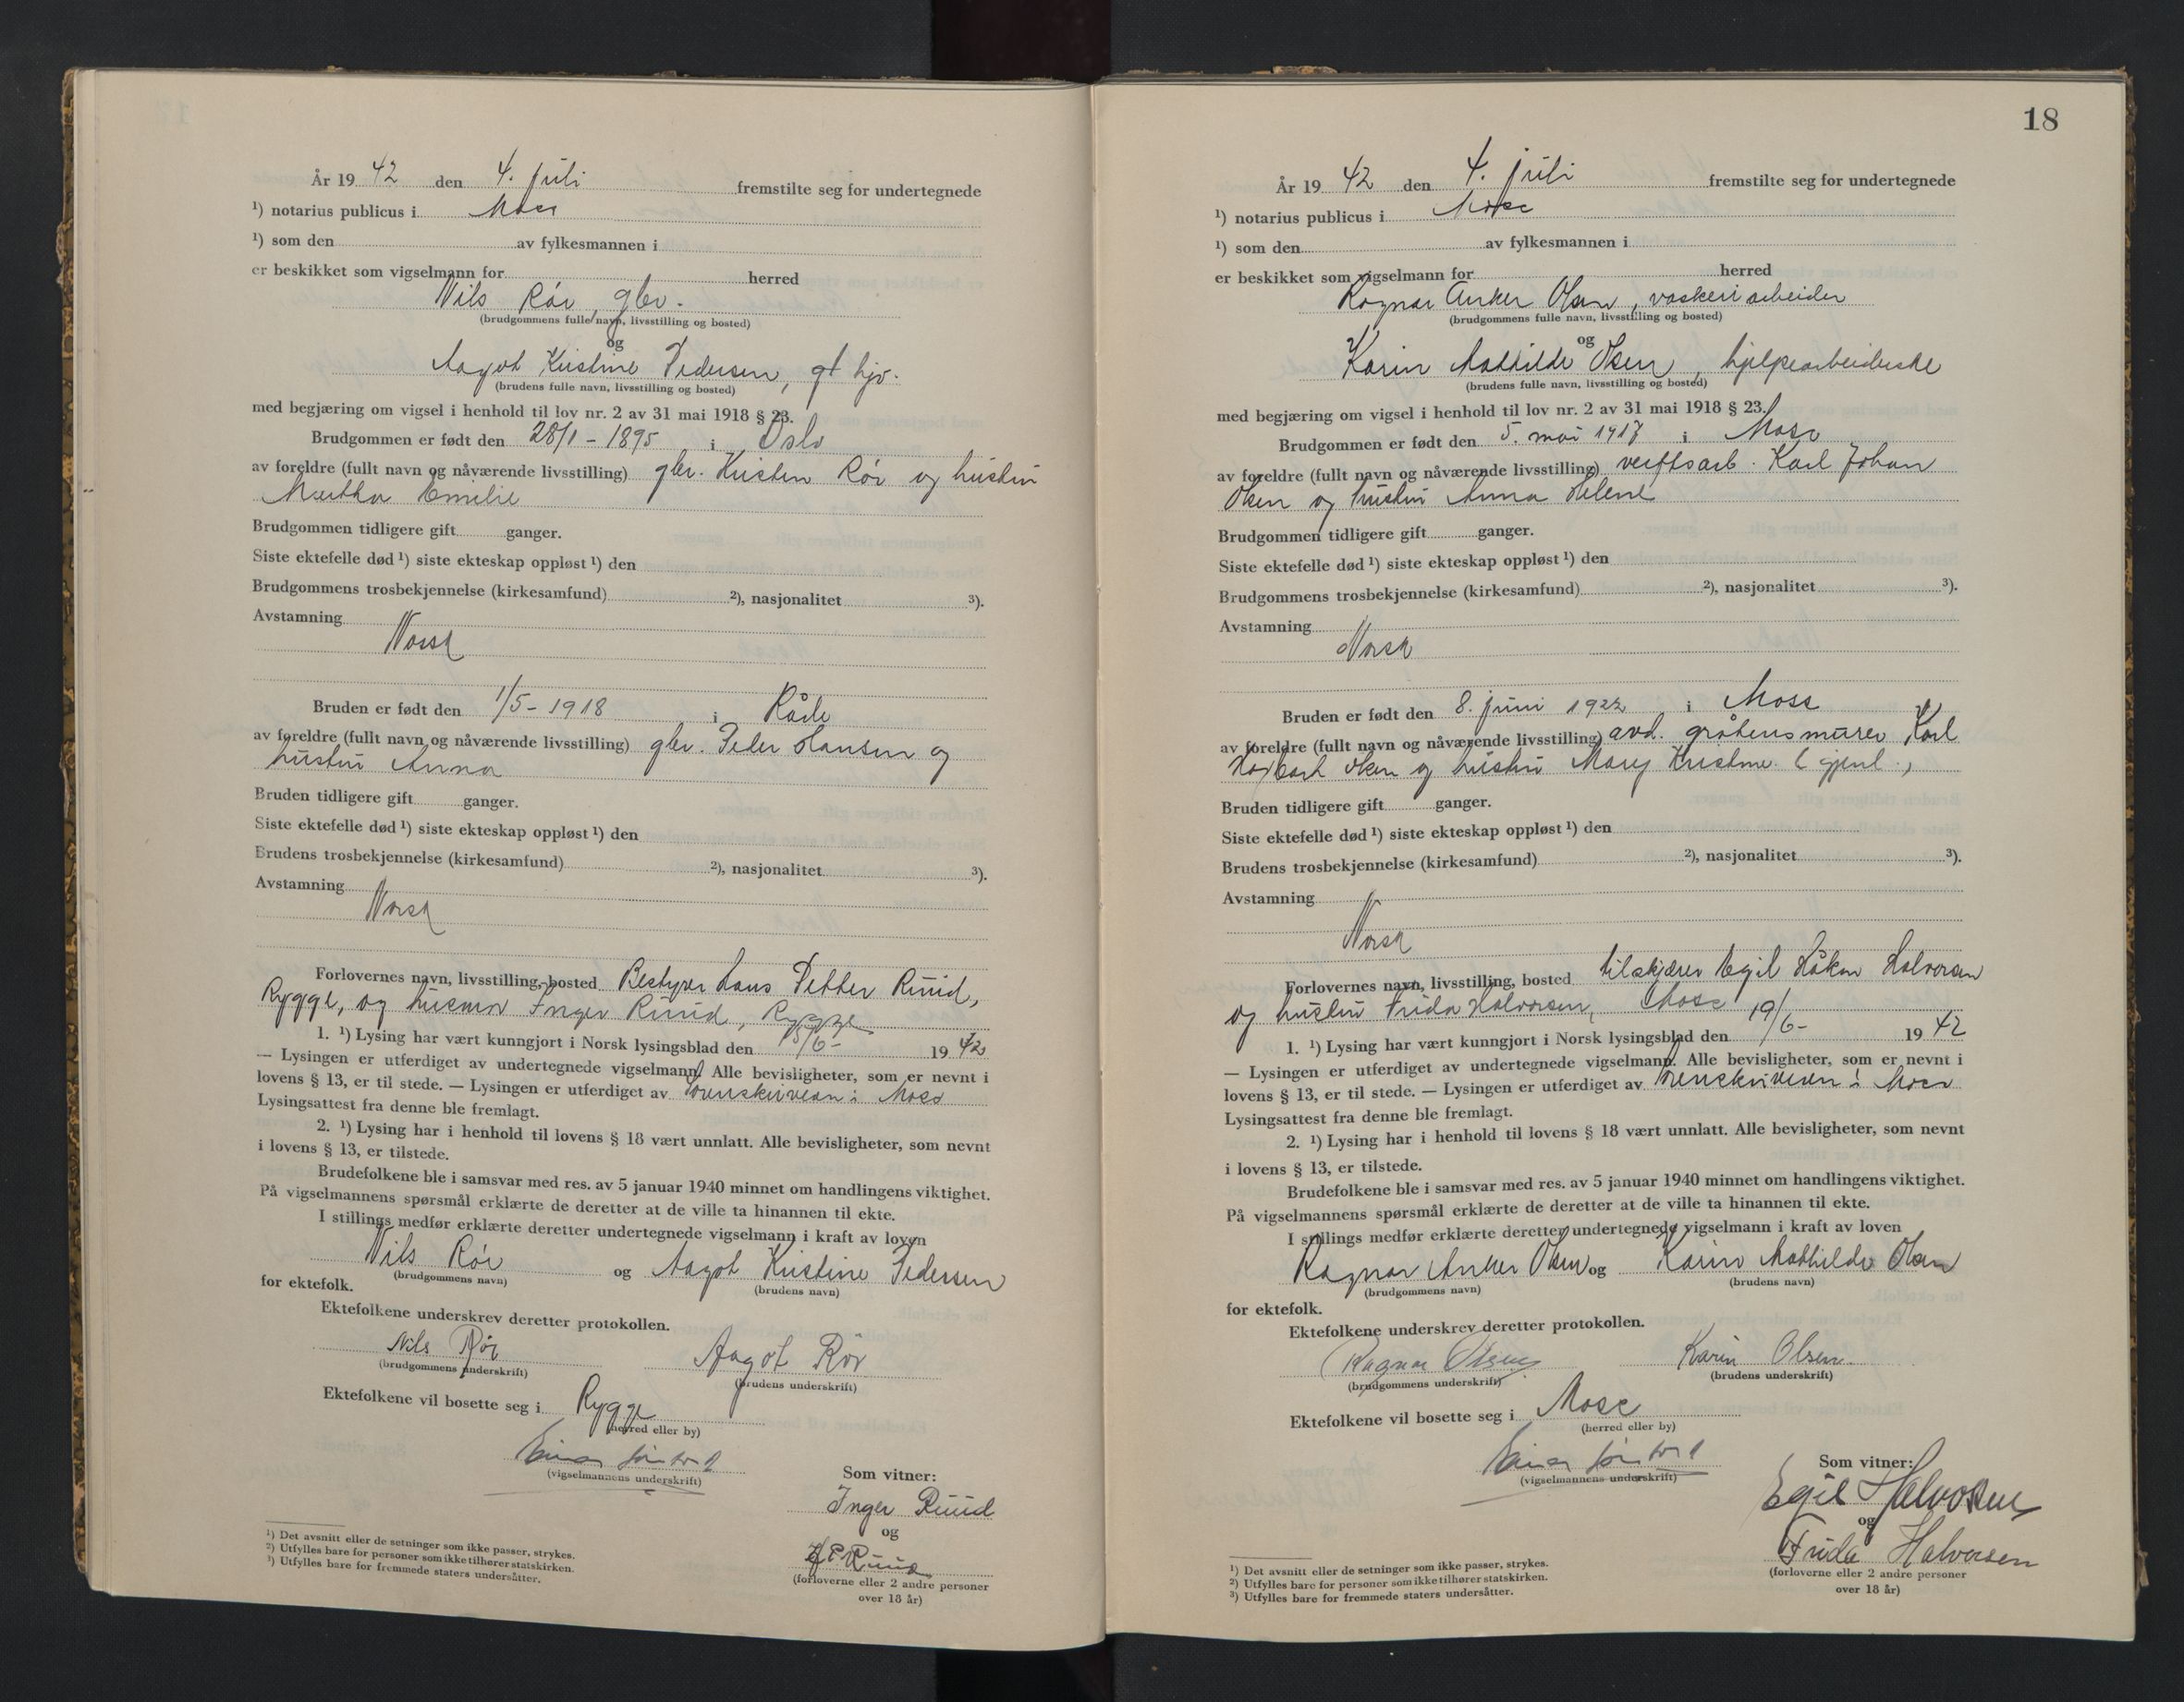 År 19 42 den 4. juli fremstilte seg for undertegnede
¹) notarius publicus i Moss
¹) som den av fylkesmannen i
er beskikket som vigselmann for herred
Nils Rór, gbr.
(brudgommens fulle navn, livsstilling og bosted)
og
Aagot Kristine Pedersen, gt hjv.
(brudens fulle navn, livsstilling og bosted)
med begjæring om vigsel i henhold til lov nr. 2 av 31 mai 1918 § 23.
Brudgommen er født den 28/1 - 1895 i Oslo
av foreldre (fullt navn og nåværende livsstilling) gbr. Kristen Rór og hustru
Martha Emilie
Brudgommen tidligere gift ganger.
Siste ektefelle død ¹) siste ekteskap oppløst ¹) den
Brudgommens trosbekjennelse (kirkesamfund) ²), nasjonalitet ³).
Avstamning
Norsk
Bruden er født den 1/5 - 1918 i Råde
av foreldre (fullt navn og nåværende livsstilling) gbr. Peder Hansen og
hustru Anna
Bruden tidligere gift ganger.
Siste ektefelle død ¹) siste ekteskap oppløst ¹) den
Brudens trosbekjennelse (kirkesamfund) ²), nasjonalitet ³).
Avstamning
Norsk
Forlovernes navn, livsstilling, bosted Bestyrer Hans Petter Ruud,
Rygge, og husmor Inger Ruud, Rygge
1. ¹) Lysing har vært kunngjort i Norsk lysingsblad den 15/6- 19 42
— Lysingen er utferdiget av undertegnede vigselmann. Alle bevisligheter, som er nevnt i
lovens § 13, er til stede. — Lysingen er utferdiget av Sorenskriveren i Moss
Lysingsattest fra denne ble fremlagt.
2. ¹) Lysing har i henhold til lovens § 18 vært unnlatt. Alle bevisligheter, som nevnt
i lovens § 13, er tilstede.
Brudefolkene ble i samsvar med res. av 5 januar 1940 minnet om handlingens viktighet.
På vigselmannens spørsmål erklærte de deretter at de ville ta hinannen til ekte.
I stillings medfør erklærte deretter undertegnede vigselmann i kraft av loven
Nils Rór og Aagot Kristine Pedersen
(brudgommens navn) (brudens navn)
for ektefolk.
Ektefolkene underskrev deretter protokollen.
Nils Rór Aagot Rör
(brudgommens underskrift) (brudens underskrift)
Ektefolkene vil bosette seg i Rygge
(herred eller by)
Einar
(vigselmannens underskrift)
Som vitner:
Inger Ruud
og
H P Ruud
(forloverne eller 2 andre personer
over 18 år)
¹) Det avsnitt eller de setninger som ikke passer, strykes.
²) Utfylles bare for personer som ikke tilhører statskirken.
³) Utfylles bare for fremmede staters undersåtter.
18
År 19 42 den 4. juli fremstilte seg for undertegnede
¹) notarius publicus i Moss
¹) som den av fylkesmannen i
er beskikket som vigselmann for herred
Ragnar Anker Olsen, vaskeriarbeider
(brudgommens fulle navn, livsstilling og bosted)
og
Karin Mathilde Olsen, hjelpearbeiderske
(brudens fulle navn, livsstilling og bosted)
med begjæring om vigsel i henhold til lov nr. 2 av 31 mai 1918 § 23.
Brudgommen er født den 5. mai 1917 i Moss
av foreldre (fullt navn og nåværende livsstilling) verftsarb. Karl Johan
Olsen og hustru Anna Helene
Brudgommen tidligere gift ganger.
Siste ektefelle død ¹) siste ekteskap oppløst ¹) den
Brudgommens trosbekjennelse (kirkesamfund) ²), nasjonalitet ³).
Avstamning
Norsk
Bruden er født den 8. juni 1922 i Moss
av foreldre (fullt navn og nåværende livsstilling) avd. gråstensmurer Karl
Olsen og hustru Mary Kristine (gjenl.,
Bruden tidligere gift ganger.
Siste ektefelle død ¹) siste ekteskap oppløst ¹) den
Brudens trosbekjennelse (kirkesamfund) ²), nasjonalitet ³).
Avstamning
Norsk
Forlovernes navn, livsstilling, bosted tilskjærer Egil Håkon Halvorsen
og hustru Frida Halvorsen, Moss
1. ¹) Lysing har vært kunngjort i Norsk lysingsblad den 19/6- 19 42
— Lysingen er utferdiget av undertegnede vigselmann. Alle bevisligheter, som er nevnt i
lovens § 13, er til stede. — Lysingen er utferdiget av Sorenskriveren i Moss
Lysingsattest fra denne ble fremlagt.
2. ¹) Lysing har i henhold til lovens § 18 vært unnlatt. Alle bevisligheter, som nevnt
i lovens § 13, er tilstede.
Brudefolkene ble i samsvar med res. av 5 januar 1940 minnet om handlingens viktighet.
På vigselmannens spørsmål erklærte de deretter at de ville ta hinannen til ekte.
I stillings medfør erklærte deretter undertegnede vigselmann i kraft av loven
Ragnar Anker Olsen og Karin Mathilde Olsen
(brudgommens navn) (brudens navn)
for ektefolk.
Ektefolkene underskrev deretter protokollen.
Ragnar Olsen Karin Olsen.
(brudgommens underskrift) (brudens underskrift)
Ektefolkene vil bosette seg i Moss
(herred eller by)
Einar
(vigselmannens underskrift)
Som vitner:
Egil Halvorsen
og
Frida Halvorsen
(forloverne eller 2 andre personer
over 18 år)
¹) Det avsnitt eller de setninger som ikke passer, strykes.
²) Utfylles bare for personer som ikke tilhører statskirken.
³) Utfylles bare for fremmede staters undersåtter.